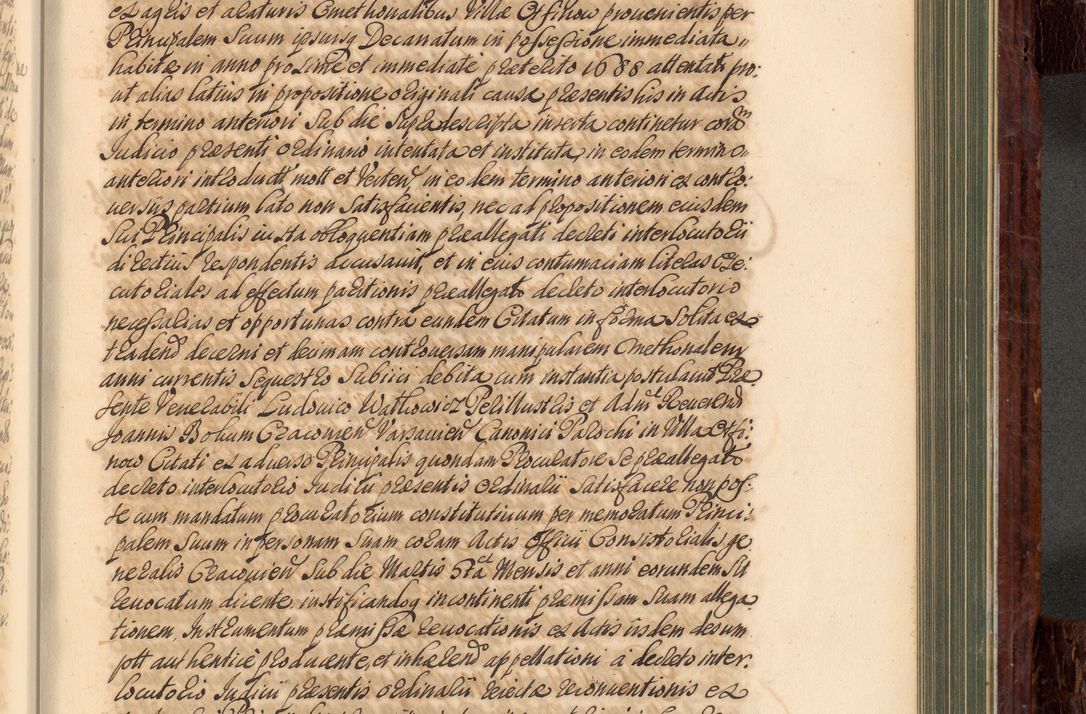 ex agris et araturis Cmethonalibus Villæ Czfinow prouenientis per
Principalem Suum ipsiusq Decanatum in possessione immediata
habitæ in anno proxime et immediate præterito 1688 attentati pro:
ut alias latius in propositione originali causæ præsentis his in Actis
in termino anteriori sub die supradescripta inserta continetur coram
Iudicio præsenti ordinario intentata et instituta, in eodem termino
anteriori introducti mott et Verten, in eodem termino anteriori ex contro
uersijs partium lato non satisfacientis, nec ad propositionem eiusdem
sui Principalis iuxta obloquentiam præallegati decreti interlocutorii
directius respondentis accusauit, et in eius contumaciam literas exe:
cutoriales ad effectum paritionis præallegato decreto interlocutorio
necessarias et opportunas contra eundem Citatum in forma solita ex
tradend decerni et decimam controuersam manipularem Cmethonalem
anni currentis Sequestro Subiici debita cum instantia postulauit Præ
sente Venerabili Ludouico Wathowicz Perillustris et Adm Reuerend
Joannis Bokum Cracouien Varsauien Canonici Parochi in Villa Czfi:
now Citati ex aduerso Principalis quondam Procuratore se præallegato
decreto interlocutorio Iudicii præsentis ordinarii satisfacere non pos-
se cum mandatum procuratorium constitutiuum per memoratum Princi
palem Suum in personam Suam coram Actis Officii Consistorialis ge
neralis Cracouien sub die Martis 5ta Mensis et anni eorundem sit
reuocatum dicente, iustificandoq incontinenti præmissam suam allega
tionem, Instrumentum præmissæ reuocationis ex Actis iisdem desum
ptt authentice producente, et inhærend appellationi a decreto inter
locutorio Iudicii præsentis ordinarii reiectæ reconuentionis ex